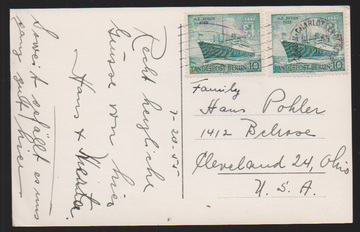 7-20-55
Recht herzliche
Grüsse von hier
Hans & Herta.
Soweit gefällt es uns
ganz gut hier.
M.S. BERLIN
1955
DEUTSCHE POST BERLIN 10
M.S. BERLIN
1955
DEUTSCHE POST BERLIN 10
BERLIN-CHARLOTTENBURG
Family
Hans Pohler
1412 Belrose
Cleveland 24, Ohio
U. S. A.